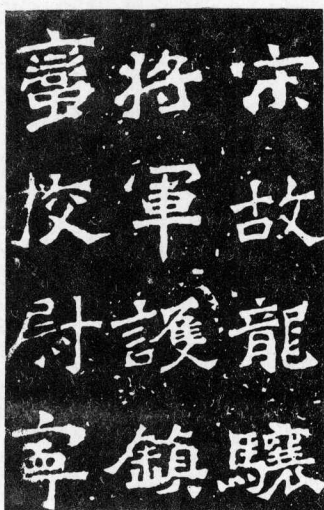 宋故龍驤
將軍護鎮
蠻挍尉寧